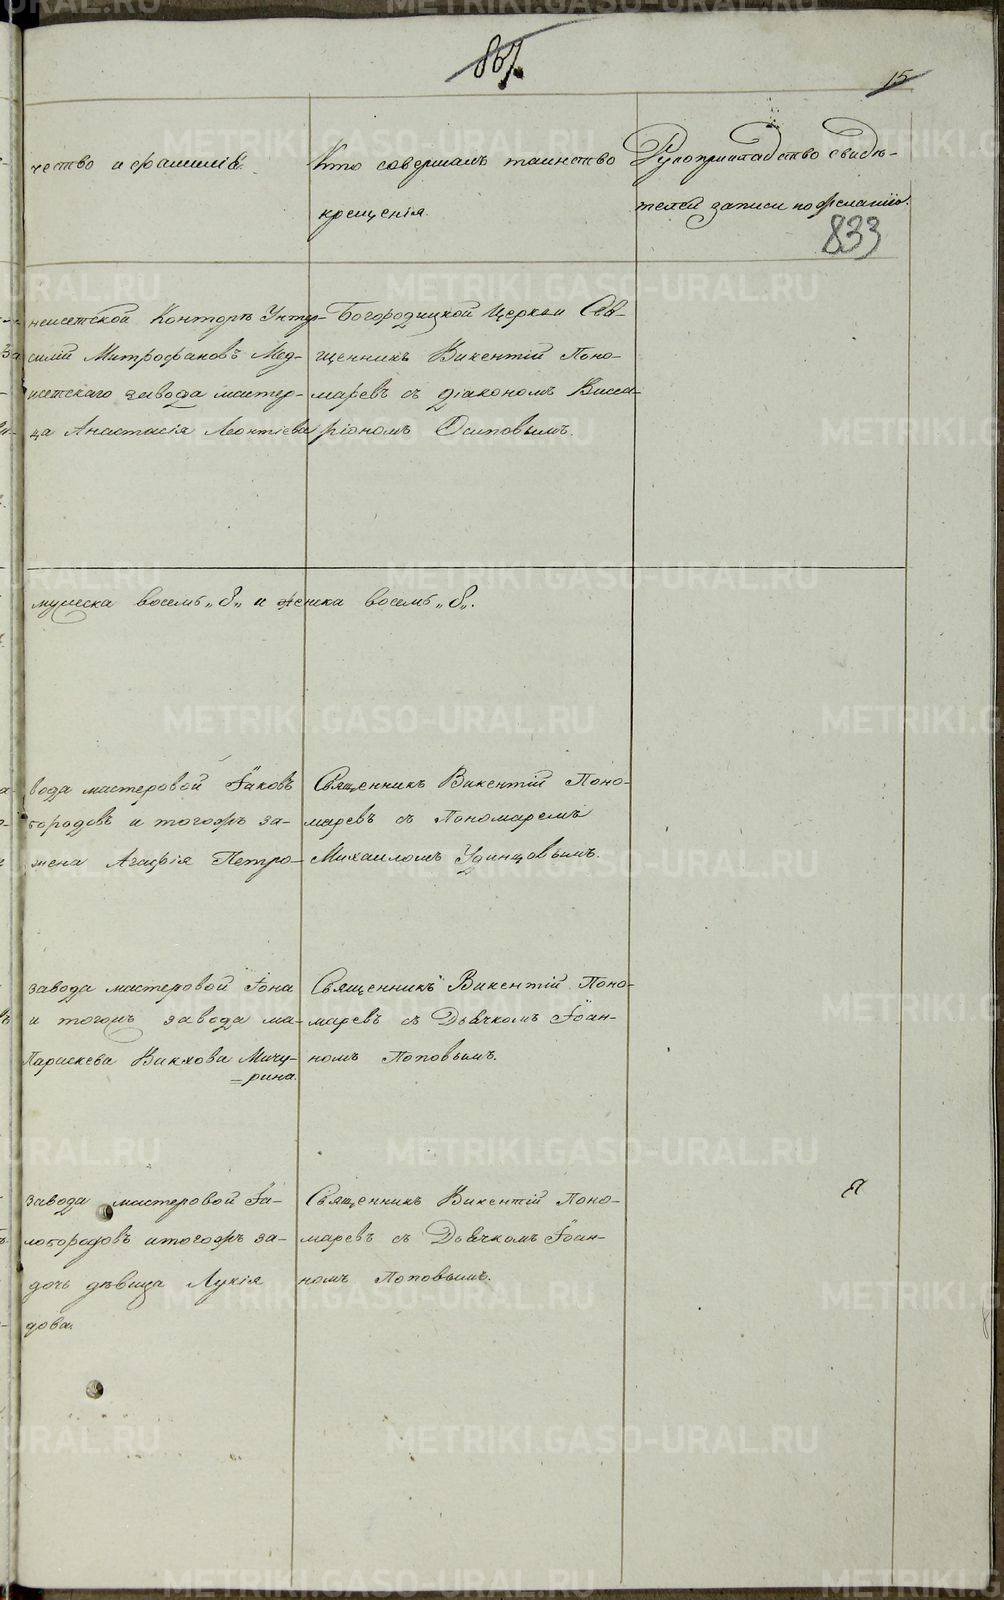 857.
15
чество и фамилія.
Кто совершалъ таинство
крещенія.
Рукоприкладство свидѣ-
телей записи по желанію.
833
неисетской Конторѣ Унтер-
силий Митрофановъ Мед-
исетскаго завода мастер-
ца Анастасія Леонтіева
Богородицкой Церкви Свя-
щенникъ Викентій Поно-
маревъ съ діакономъ Висса-
ріономъ Осиповымъ.
мужеска восемь „8„ и женска восемь „8„.
вода мастеровой Іаковъ
городовъ и тогожъ за-
жена Агафія Петро-
Священникъ Викентій Поно-
маревъ съ Пономаремъ
Михаиломъ Удинцовымъ.
завода мастеровой Іона
и тогожъ завода ма-
Параскева Викхова Мичу-
=рина.
Священникъ Викентій Поно-
маревъ съ Дьячкомъ Іоан-
номъ Поповымъ.
завода мастеровой Га-
логородовъ итогожъ за-
дочь дѣвица Лукія
дова.
Священникъ Викентій Поно-
маревъ съ Дьячкомъ Іоан-
номъ Поповымъ.
METRIKI.GASO-URAL.RU